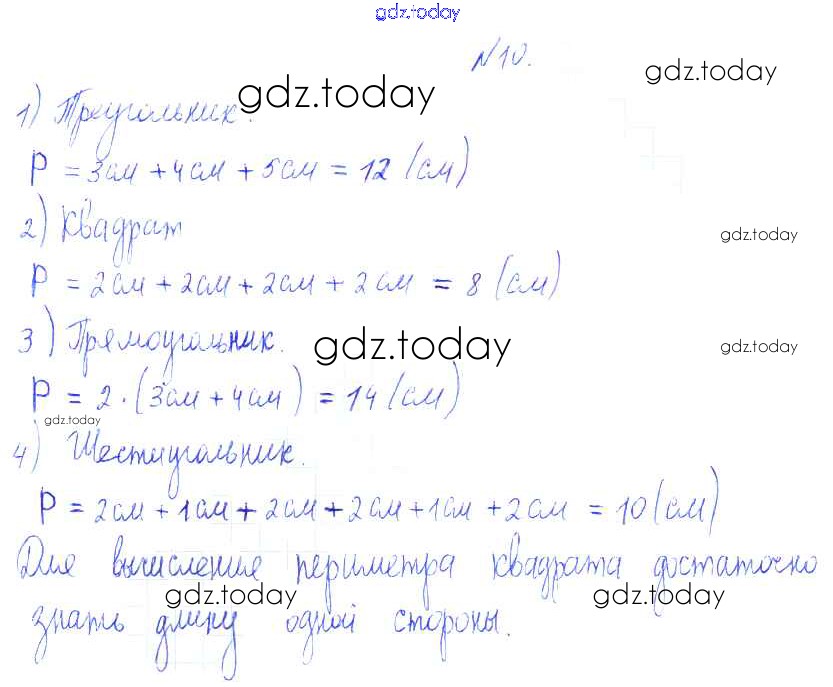 gdz.today
№10.
gdz.today
1) Треугольник. gdz.today
P = 3см + 4см + 5см = 12 (см)
2) Квадрат
gdz.today
P = 2см + 2см + 2см + 2см = 8 (см)
3) Прямоугольник. gdz.today
gdz.today
P = 2·(3см + 4см) = 14 (см)
gdz.today
4) Шестиугольник.
P = 2см + 1см + 2см + 2см + 1см + 2см = 10 (см)
Для вычисления периметра квадрата достаточно
gdz.today gdz.today
знать длину одной стороны.